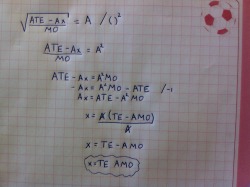 √(ATE - Ax / MO) = A /()²
ATE - Ax / MO = A²
ATE - Ax = A²MO
- Ax = A²MO - ATE /-1
Ax = ATE - A²MO
x = A(TE - AMO) / A
x = TE - AMO
x = TE AMO